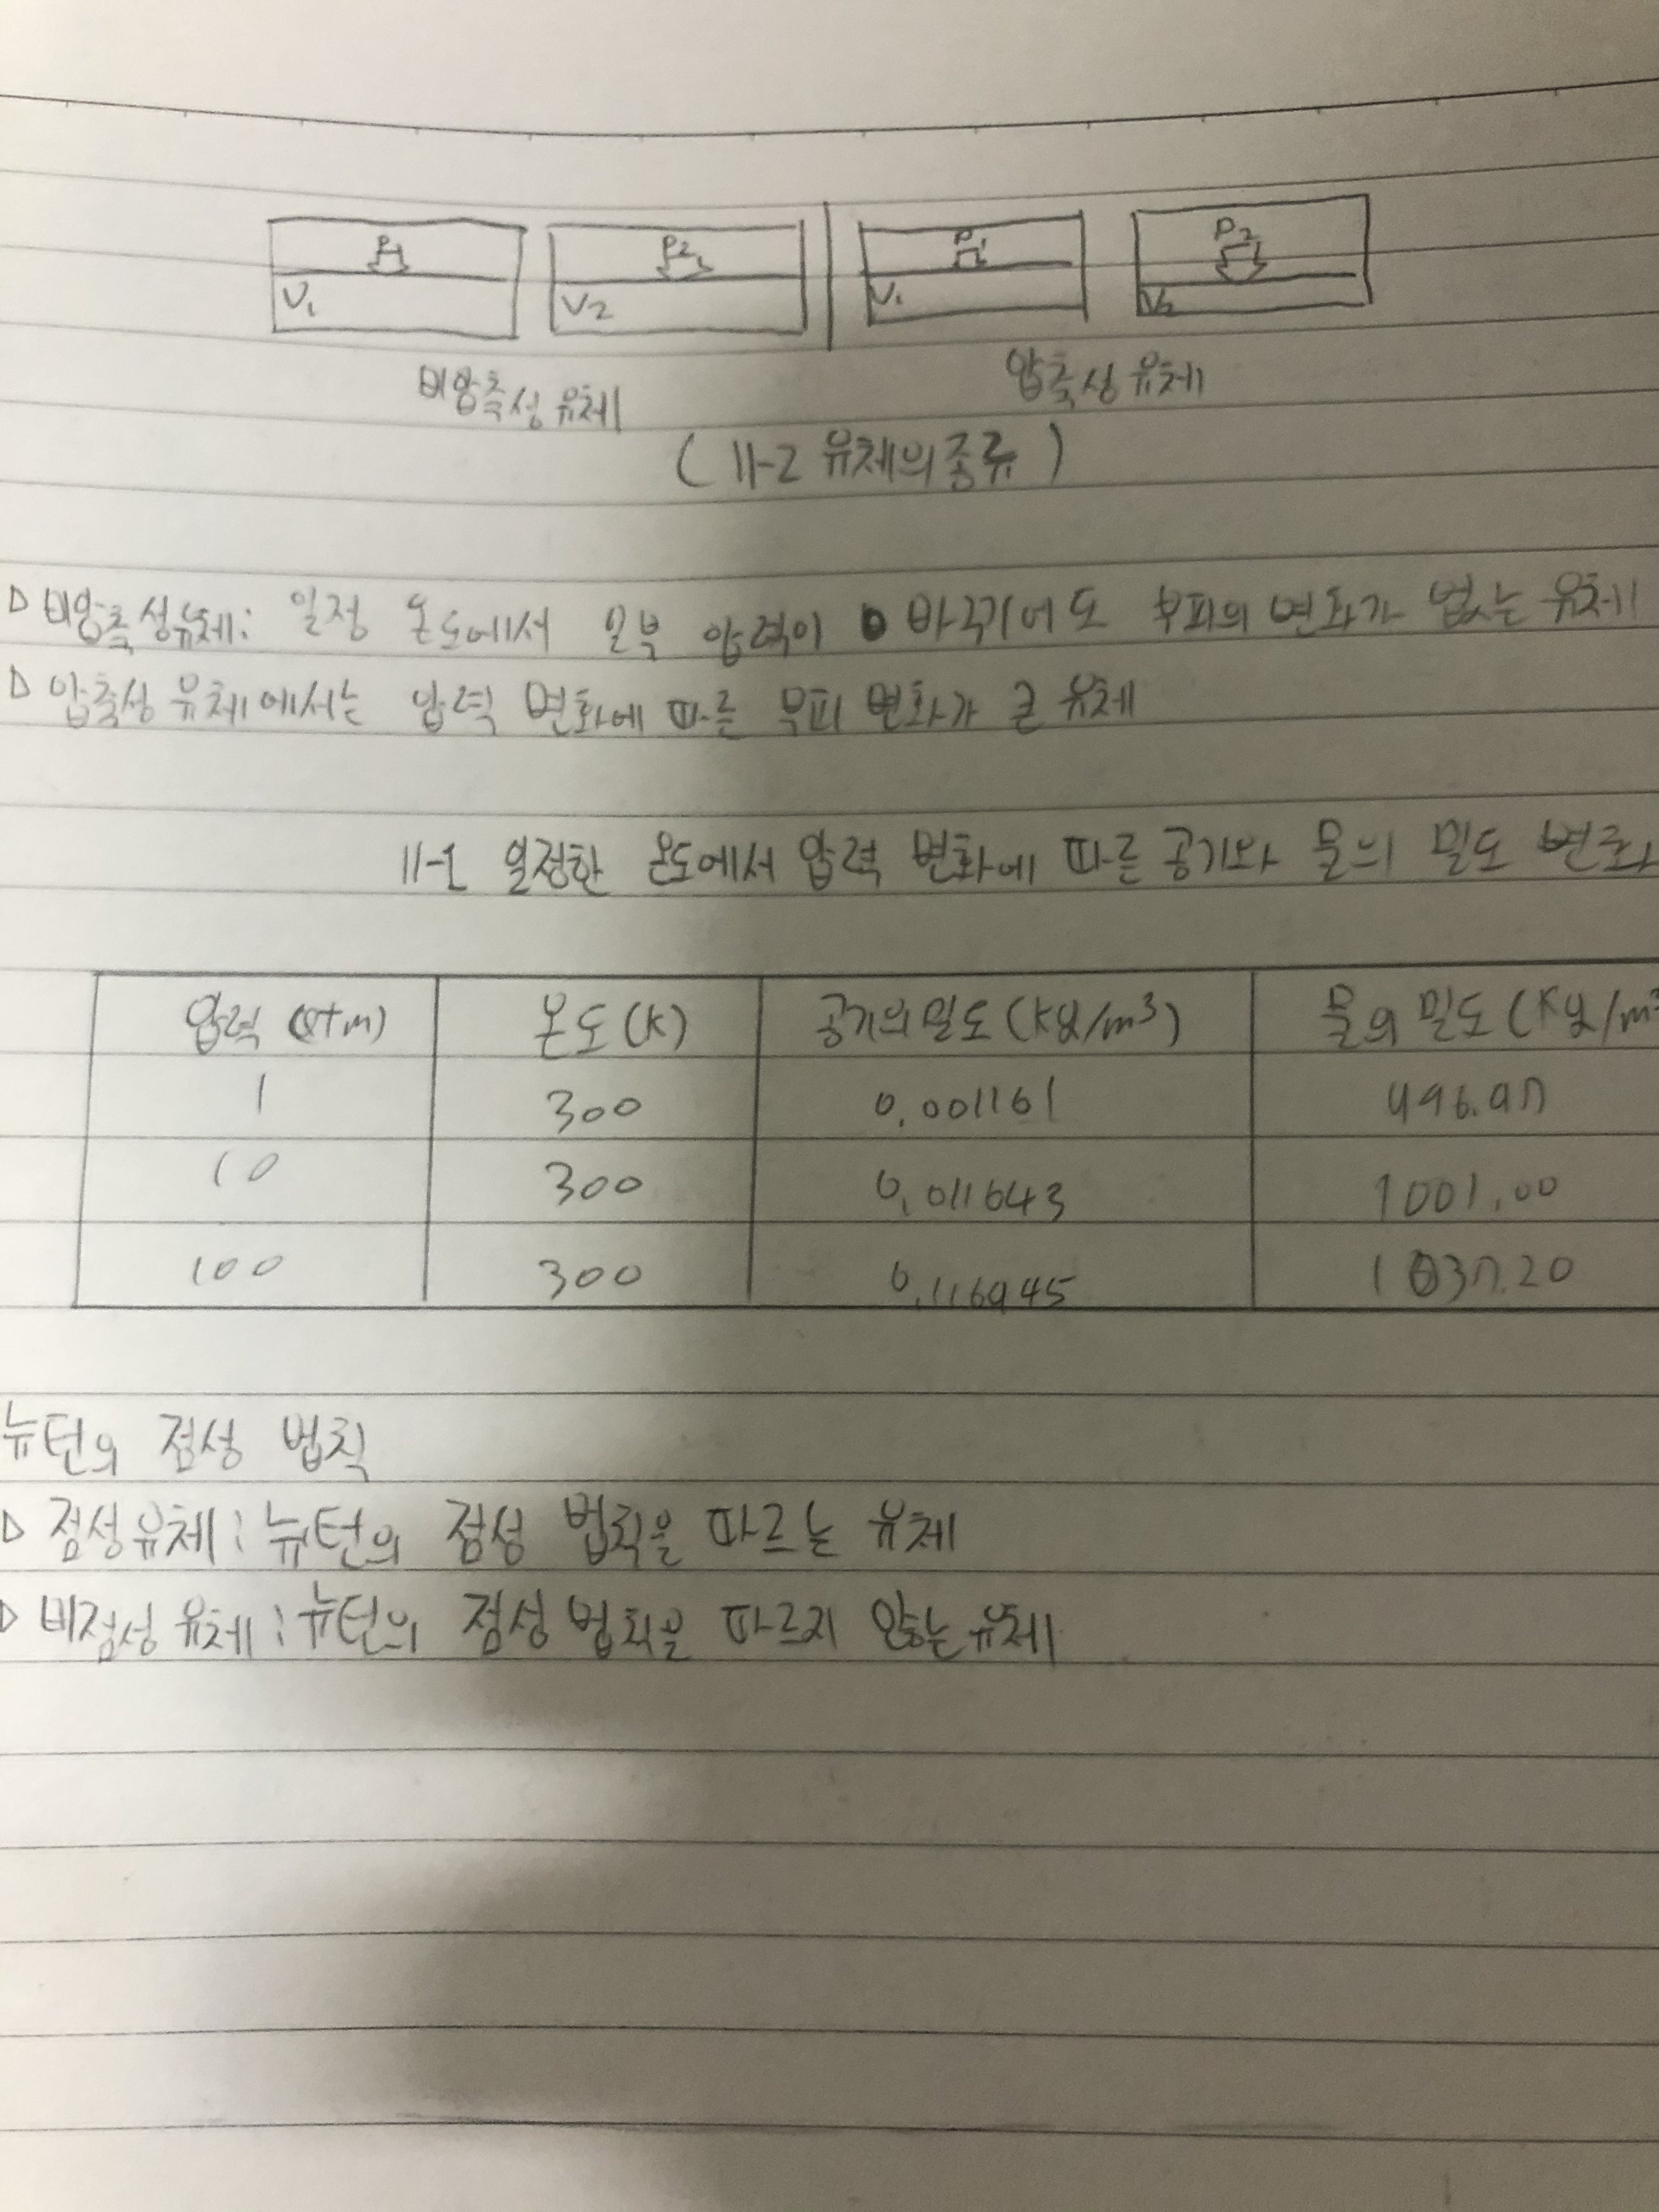 P1 P2 P1 P2
V1 V2 V1 V2
비압축성 유체 압축성 유체
(11-2 유체의 종류)
▷ 비압축성유체: 일정 온도에서 외부 압력이 바뀌어도 부피의 변화가 없는 유체
▷ 압축성 유체에서는 압력 변화에 따른 부피 변화가 큰 유체
11-1 일정한 온도에서 압력 변화에 따른 공기와 물의 밀도 변화
압력 (atm) 온도 (K) 공기의 밀도 (kg/m³) 물의 밀도 (kg/m³
1 300 0.001161 996.97
10 300 0.011643 1001.00
100 300 0.116945 1037.20
뉴턴의 점성 법칙
▷ 점성유체: 뉴턴의 점성 법칙을 따르는 유체
▷ 비점성 유체: 뉴턴의 점성 법칙을 따르지 않는 유체